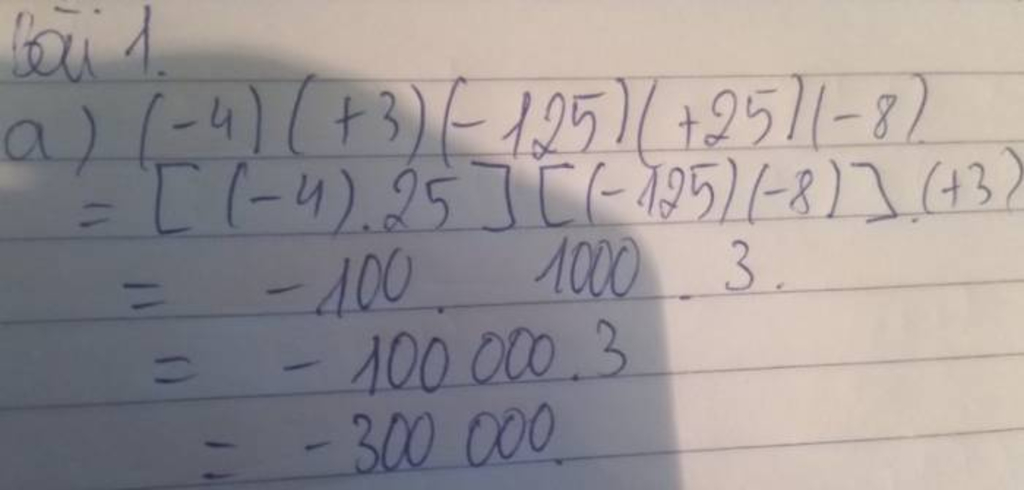 Bài 1.
a) (-4) (+3)(-125)(+25)(-8)
= [(-4).25][(-125)(-8)].(+3)
= -100. 1000 . 3.
= - 100 000.3
= -300 000.